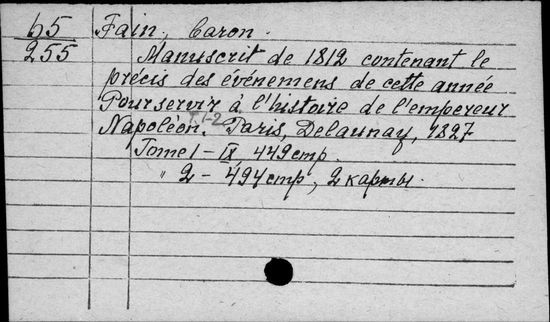 65 Fain, Caron.
255 Manuscrit de 1812 contenant le
précis des événemens de cette année
Pour servir à l'histoire de l'empereur
Napoléon. T. 1-2 Paris, Delaunay, 1827
Tome 1 – IX, 449 стр.
" 2 – 494 стр, 2 карты.